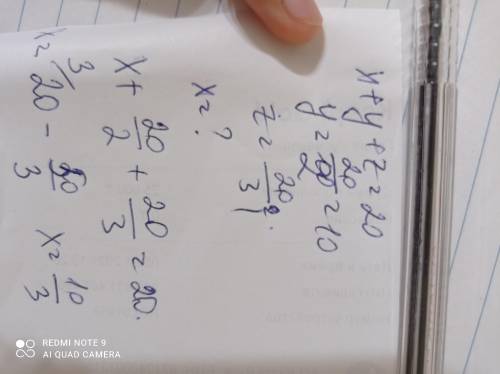 x+y+z=20
y=20/2=10
z=20/3.
x=?
x+20/2+20/3=20.
x=20-50/3 x=10/3
REDMI NOTE 9
AI QUAD CAMERA